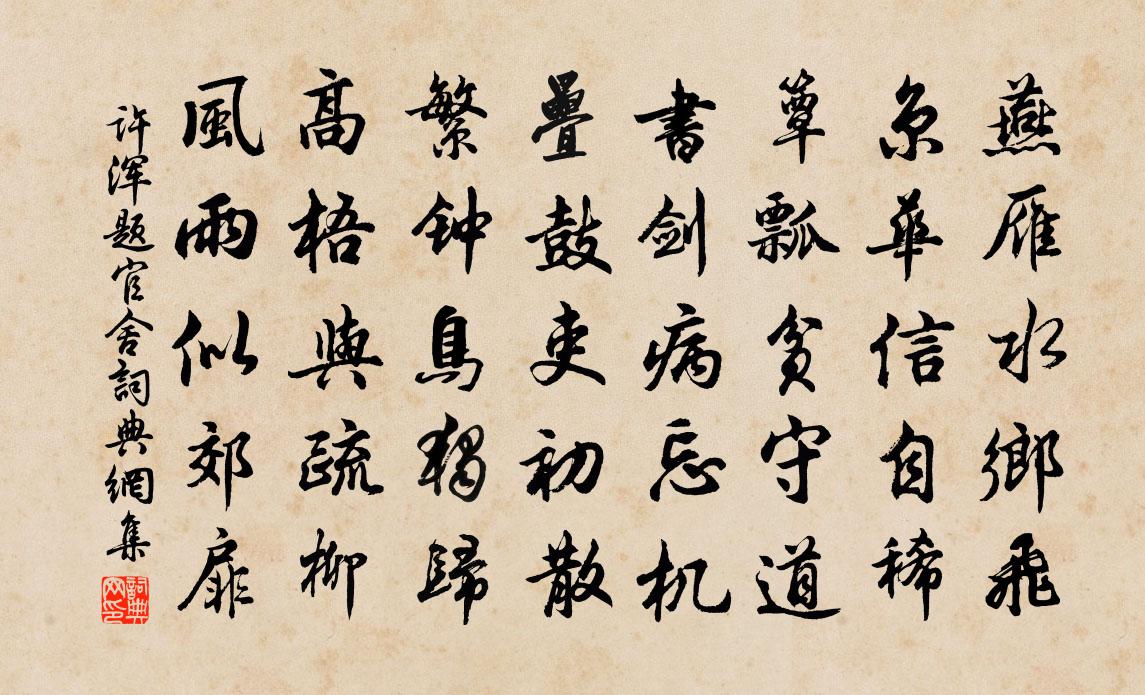 燕雁水鄉飛
京華信自稀
簞瓢貧守道
書劍病忘机
疊鼓吏初散
繁钟鳥獨歸
高梧與疏柳
風雨似郊扉
许渾题官舍詞典網集
詞典网印